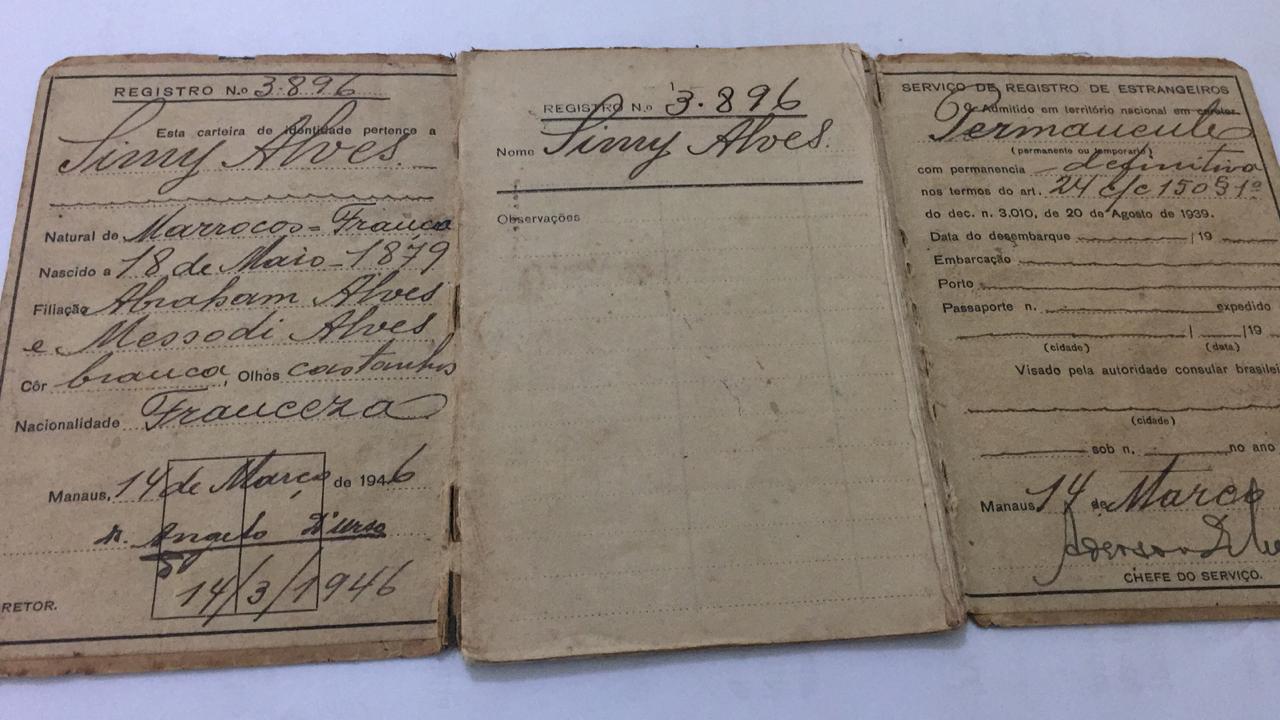 REGISTRO N.o 3.896
Esta carteira de identidade pertence a
Simy Alves.
Natural de Marrocos = Franca
Nascido a 18 de Maio - 1879
Filiação Abraham Alves
e Messodi Alves
Côr branca, Olhos castanhos
Nacionalidade Franceza
Manaus, 14 de Março de 1946
Angelo D'Urso
14/3/1946
RETOR.
REGISTRO N.o 3.896
Nome Simy Alves.
Observações
SERVIÇO DE REGISTRO DE ESTRANGEIROS
Admitido em território nacional em carater
Permanente
(permanente ou temporario)
com permanencia definitiva
nos termos do art. 24 c/c 150 § 1º
do dec. n. 3.010, de 20 de Agosto de 1939.
Data do desembarque / 19
Embarcação
Porto
Passaporte n. expedido
/ /19
(cidade) (data)
Visado pela autoridade consular brasilei
(cidade)
sob n. no ano
Manaus 14 de Março
CHEFE DO SERVIÇO.